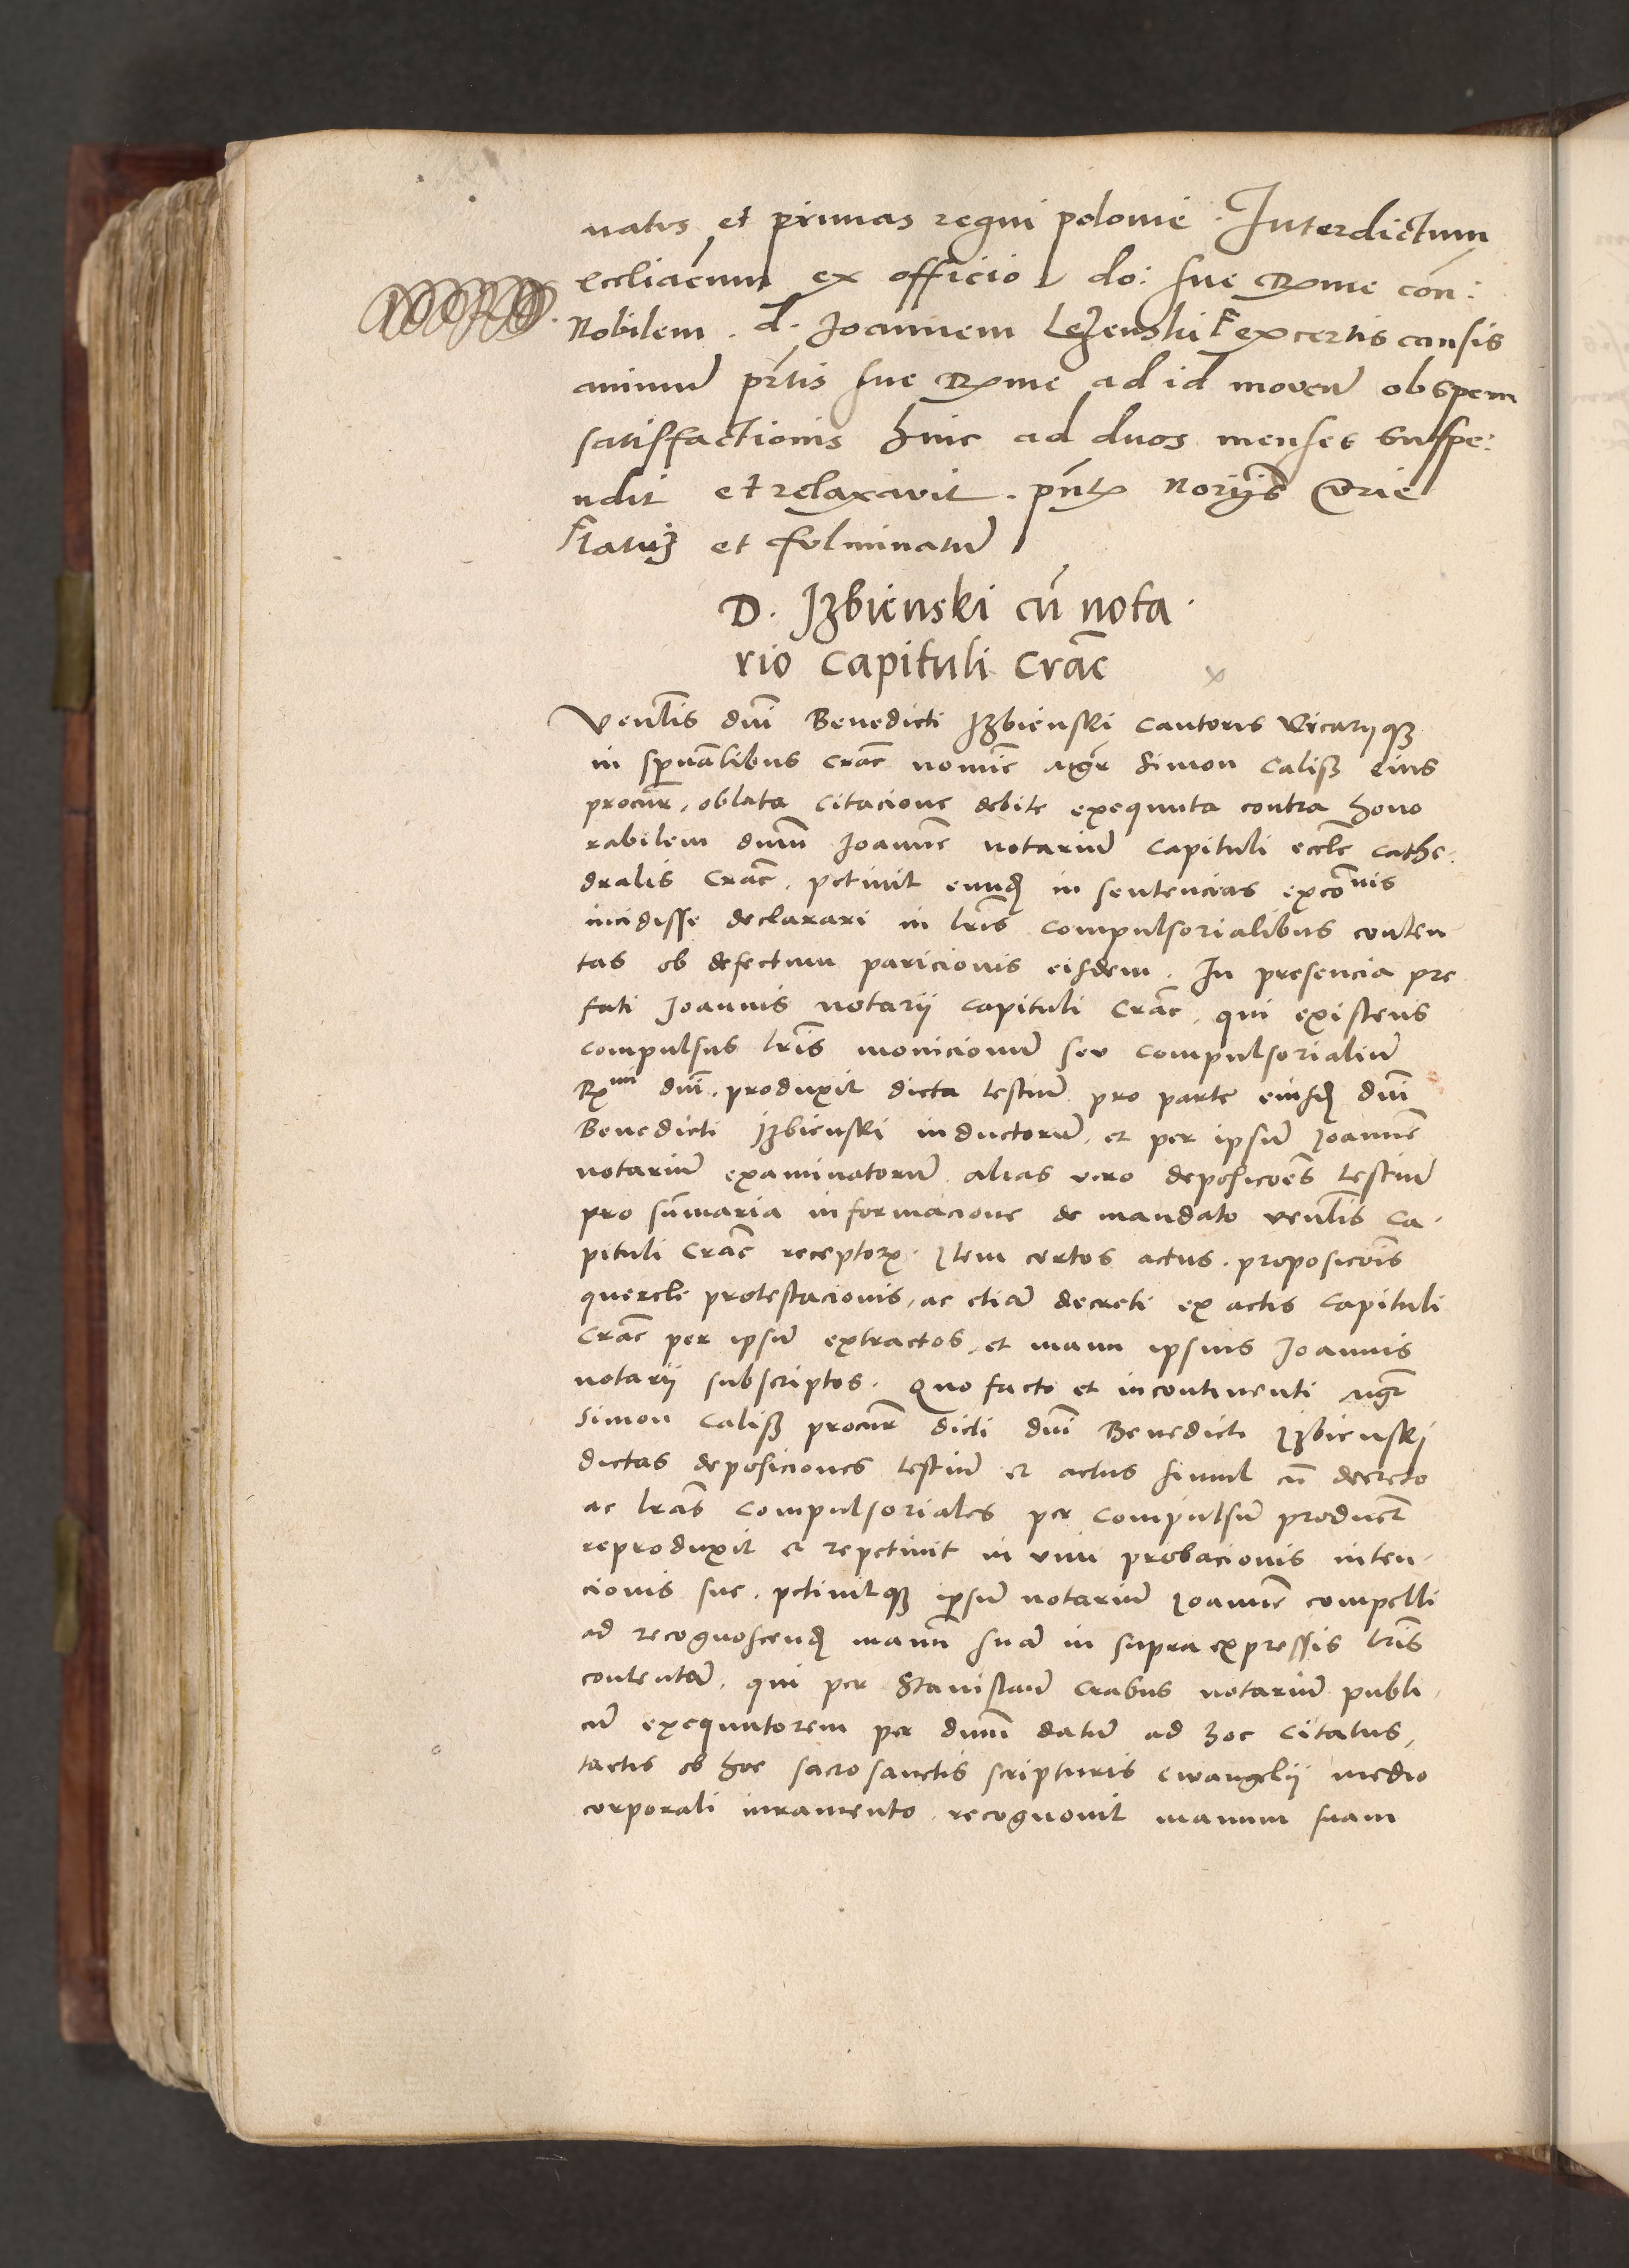 natus et primas regni polonie . Interdictum
eccliacum ex officio do: sue Rxme con:
Nobilem . d . Joannem Lezenski F ex certis causis
animū prtis sue Rxme ad id movenť ob spem
satisfactionis hinc ad duos menses suspe:
ndit et relaxavit . pntx Norijs Curie
F latuʒ et fulminatū
D . Jzbienski cū nota
rio Capituli Crac̄
Venlis dni Benedicti Jzbienski Cantoris Vicarijqʒ
in spualibus Crac̄ nomīe mgr Simon Calisz eius
procur̄ , oblata Citacione debite exequuta contra hono
rabilem dnm Joannē notariū Capituli eccle Cathe .
dralis Crac̄ , petiuit eundē in sentencias exco͞nis
incidisse declarari in lrīs compulsorialibus conten
tas ob defectum paricionis eisdem . In presencia pre
fati Joannis notarii Capituli Crac̄ , qui existens
compulsus lrīs monicionū seu compulsorialiū
Rxmi dni , produxit dicta testiū pro parte eiusdē dni
Benedicti Jzbienski inductorū , et per ipsū Joannē
notariū examinatorū . alias vero deposicōes testiū
pro sūmaria informacione de mandato venlis Ca .
pituli Crac̄ receptorx . Item certos actus . proposicōis
querele protestacionis , ac etiā decreti ex actis Capituli
Crac̄ per ipsū extractos , et manu ipsius Joannis
notarij subscriptos . Quo facto et incontinenti mgr
Simon Calisz procur̄ dicti dni Benedicti Jzbienski
dictas deposiciones testiū et actus simul cū decreto
ac lrās compulsoriales per compulsū product̄
reproduxit et repetiuit in vim probacionis inten .
cionis sue , petiuitqʒ ipsū notariū Joannē compelli
ad recognoscendē manū suā in supra expressis lrīs
contentā , qui per Stanislaū Crabus notariū publi
cū exequutorem per dnm datū ad hoc Citatus ,
tactis ob hoc sacrosanctis scripturis ewangelij medio
corporali iuramento , recognouit manum suam